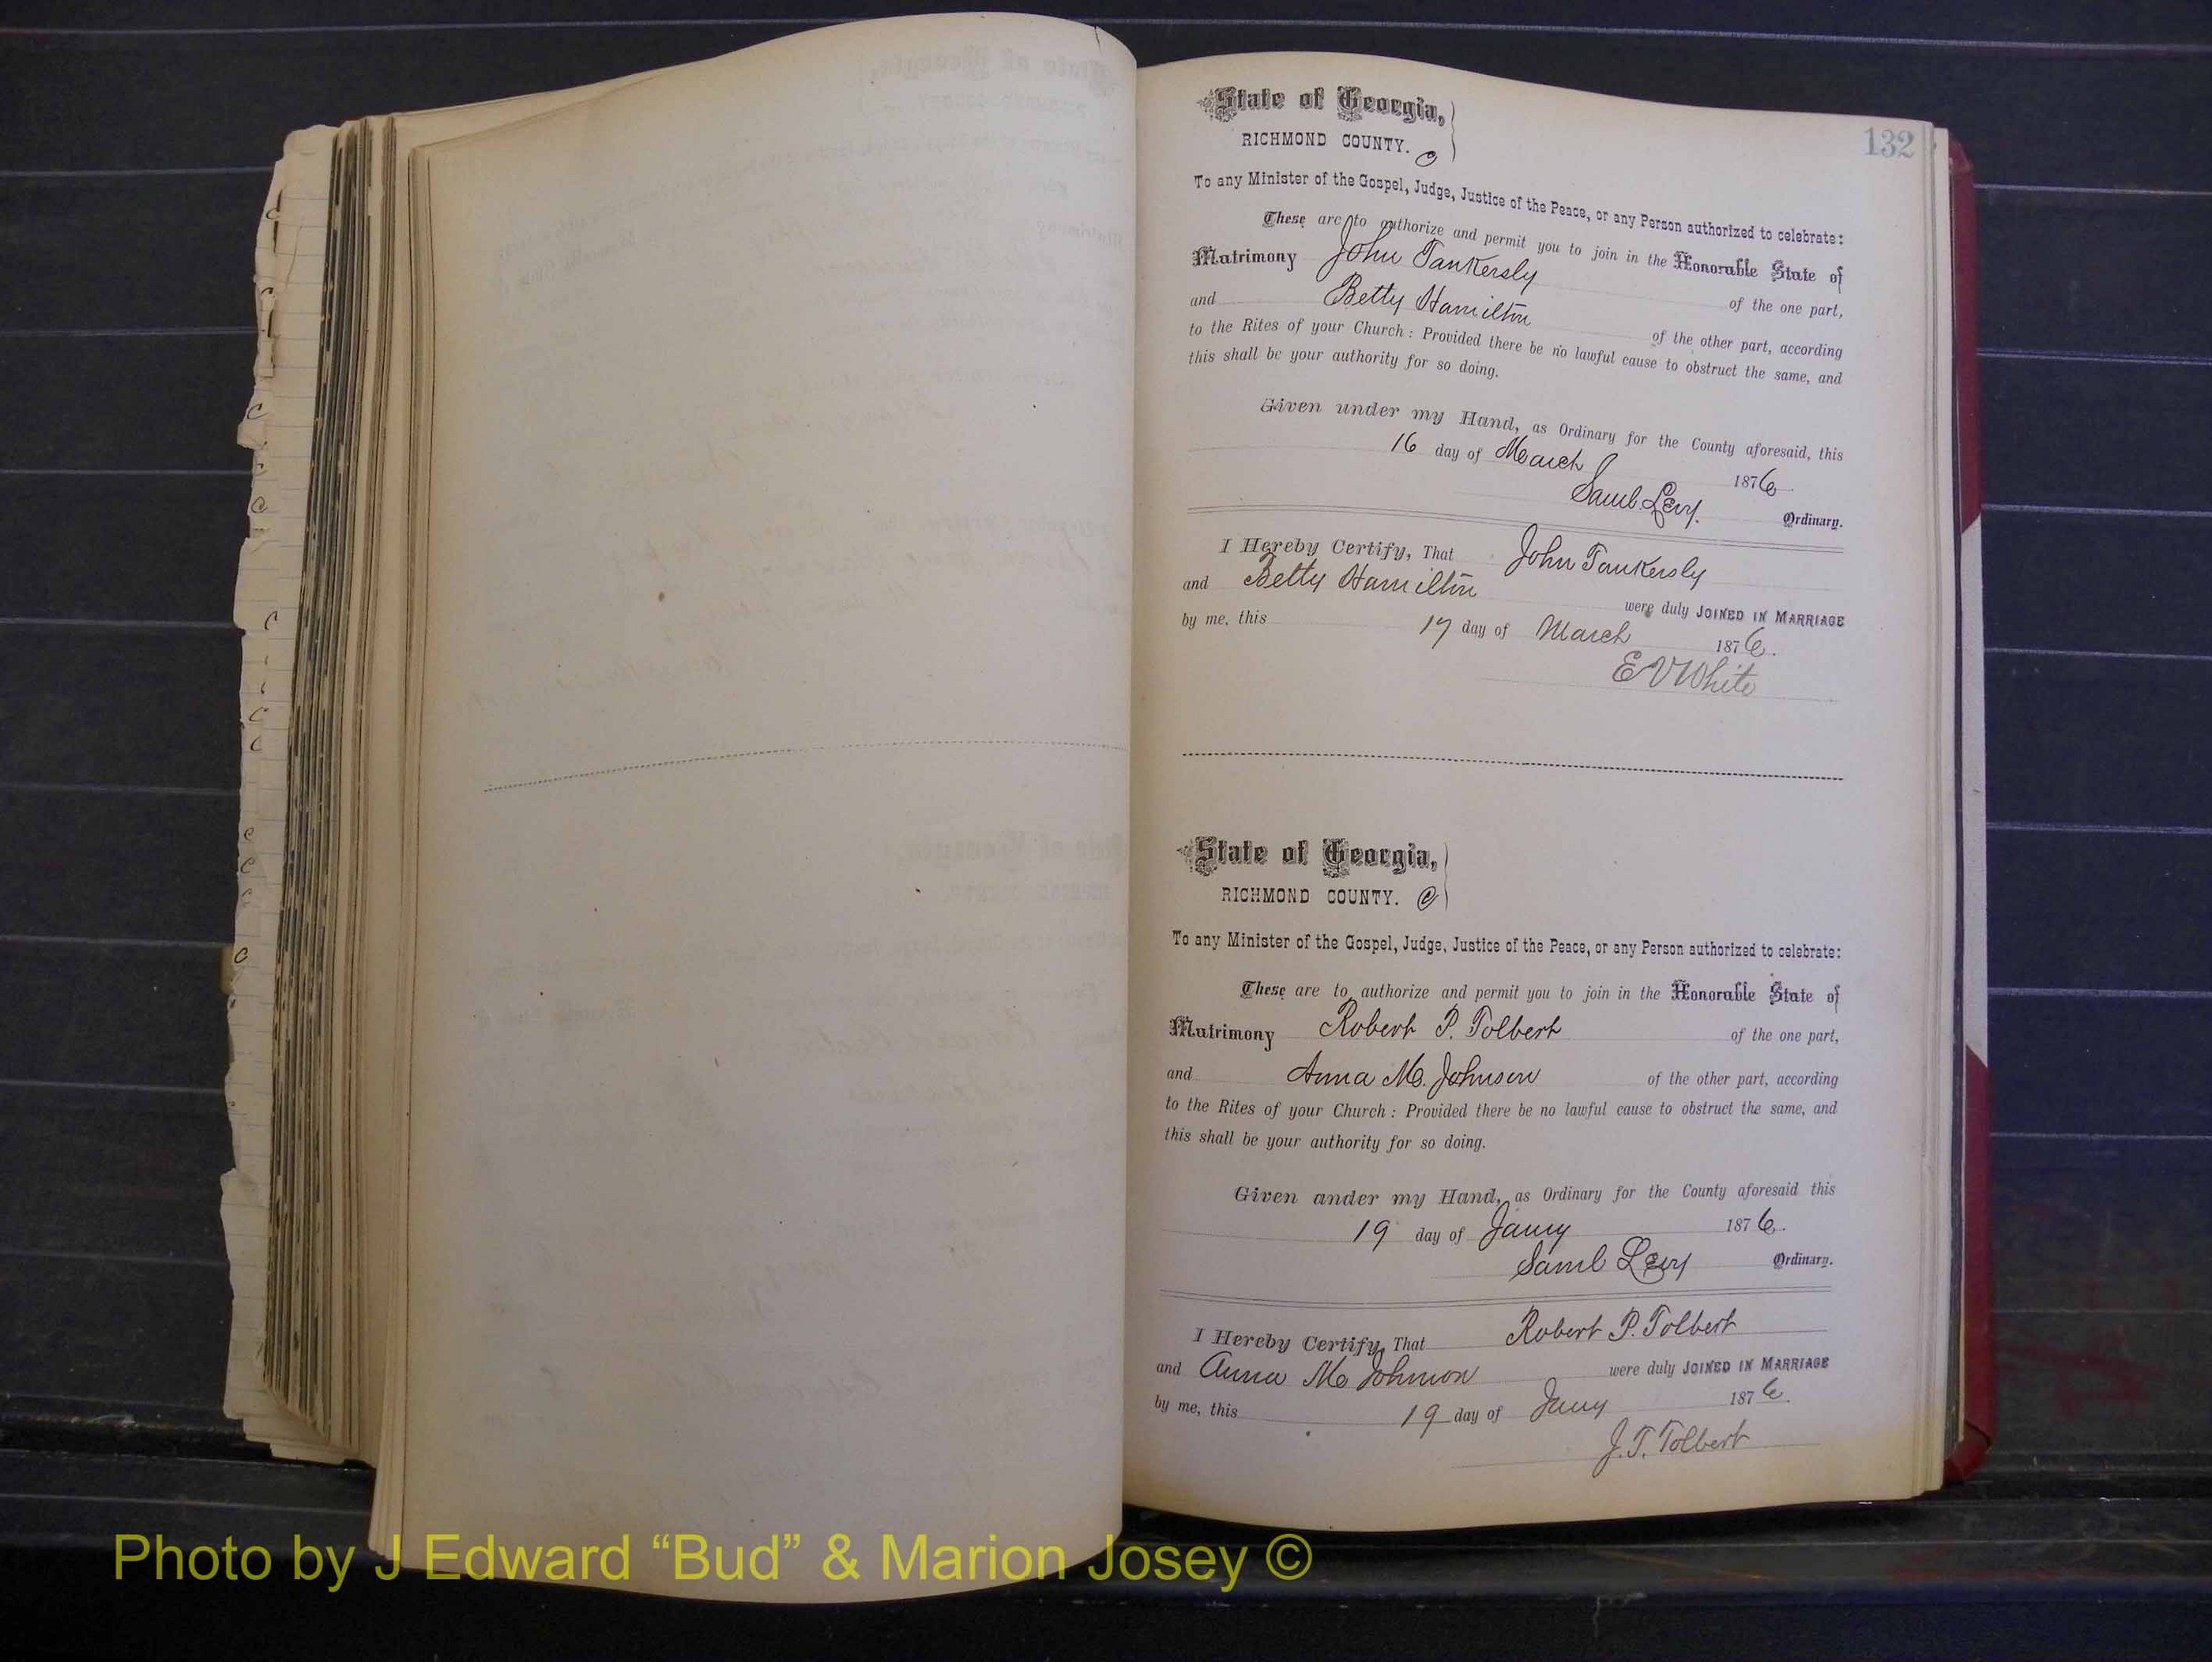 132
State of Georgia,
RICHMOND COUNTY. C
To any Minister of the Gospel, Judge, Justice of the Peace, or any Person authorized to celebrate:
These are to authorize and permit you to join in the Honorable State of
Matrimony John Tankersly of the one part,
and Betty Hamilton of the other part, according
to the Rites of your Church: Provided there be no lawful cause to obstruct the same, and
this shall be your authority for so doing.
Given under my Hand, as Ordinary for the County aforesaid, this
16 day of March 1876
Saml. Levy. Ordinary.
I Hereby Certify, That John Tankersly
and Betty Hamilton were duly JOINED IN MARRIAGE
by me, this 17 day of March 1876.
E V White
State of Georgia,
RICHMOND COUNTY. C
To any Minister of the Gospel, Judge, Justice of the Peace, or any Person authorized to celebrate:
These are to authorize and permit you to join in the Honorable State of
Matrimony Robert P. Tolbert of the one part,
and Anna M. Johnson of the other part, according
to the Rites of your Church: Provided there be no lawful cause to obstruct the same, and
this shall be your authority for so doing.
Given under my Hand, as Ordinary for the County aforesaid this
19 day of Jany 1876.
Saml Levy Ordinary.
I Hereby Certify, That Robert P. Tolbert
and Anna M Johnson were duly JOINED IN MARRIAGE
by me, this 19 day of Jany 1876.
J. T. Tolbert
Photo by J Edward “Bud” & Marion Josey ©